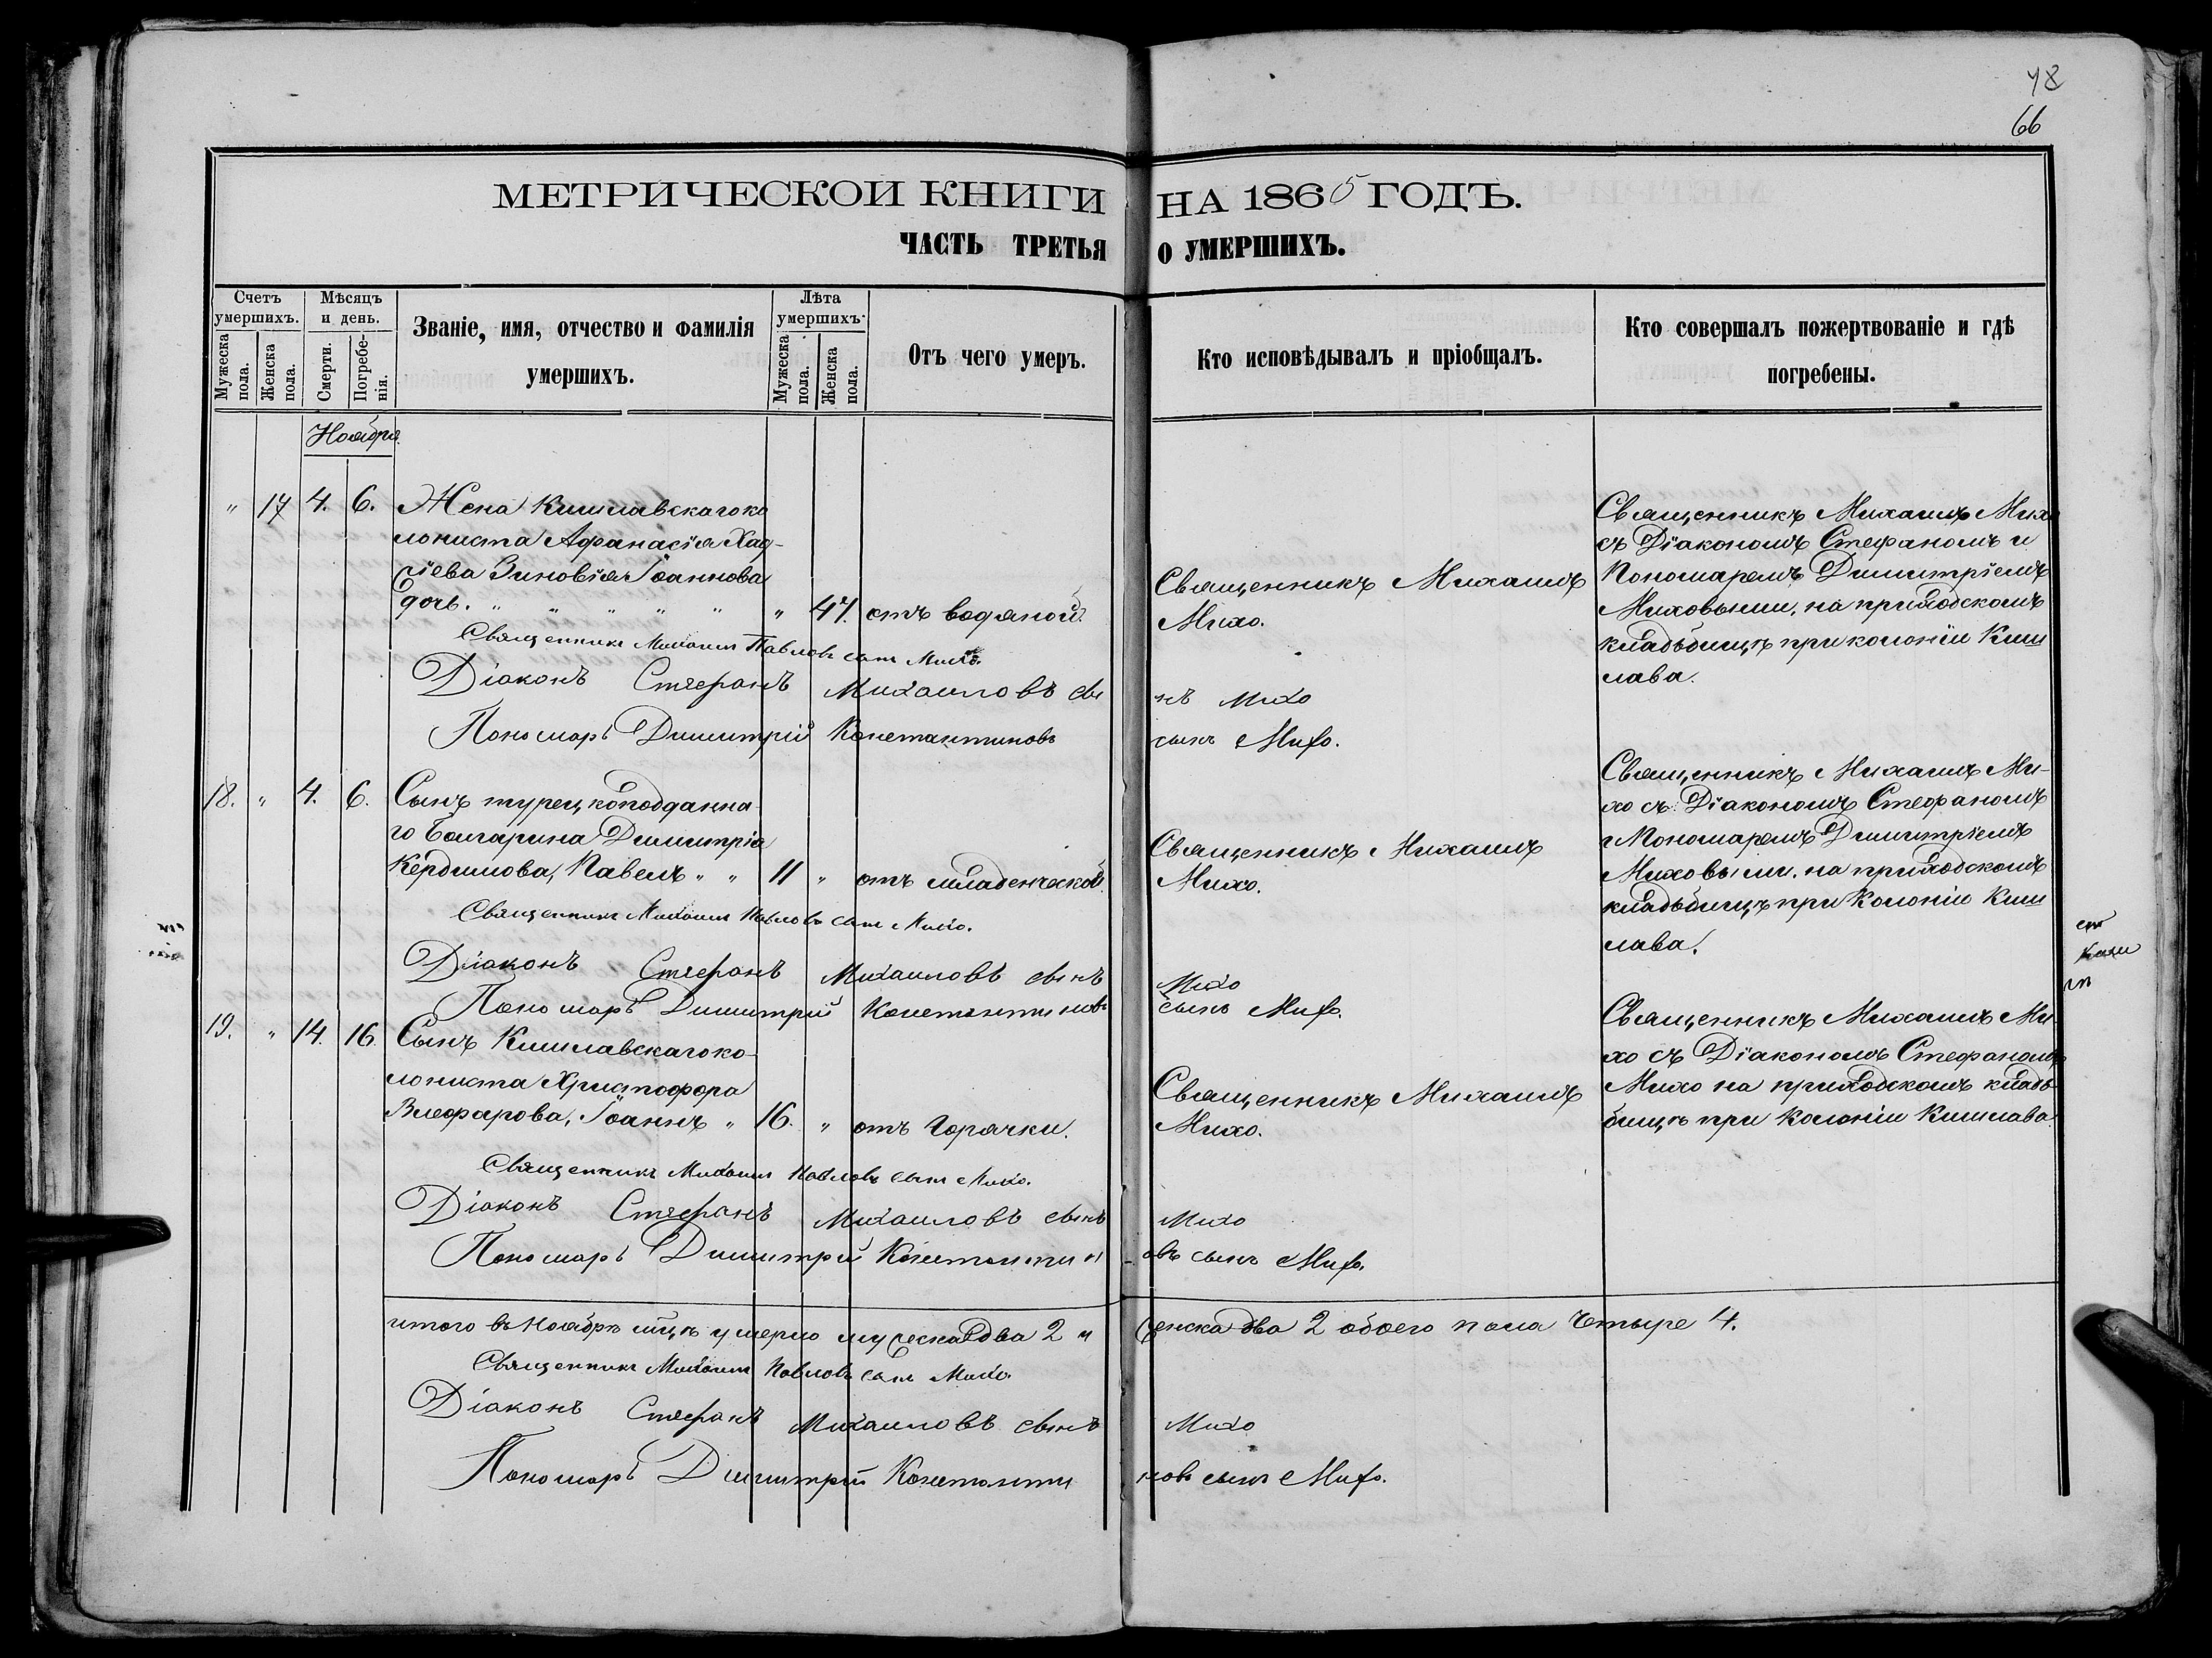 48
66
МЕТРИЧЕСКОИ КНИГИ НА 1865 ГОДЪ.
ЧАСТЬ ТРЕТЬЯ О УМЕРШИХЪ.
Счетъ умершихъ.
Мужеска пола.
Женска пола.
Мѣсяцъ и день.
Смерти.
Погребенія.
Званіе, имя, отчество и фамилія
умершихъ.
Лѣта умершихъ.
Мужеска пола.
Женска пола.
Отъ чего умеръ.
Кто исповѣдывалъ и пріобщалъ.
Кто совершалъ пожертвованіе и гдѣ
погребены.
Ноября
" 17 4. 6. Жена Кишлавскагоко
лониста Афанасія Хад-
жіева Зиновія Іоаннова
дочь. " " " " " " 47. отъ водяной.
Священникъ Михаилъ
Михо.
Священникъ Михаилъ Михо
съ Діакономъ Стефаномъ и
Пономаремъ Димитріемъ
Миховыми, на приходскомъ
кладбищѣ при колоніи Киш
лава.
Священникъ Михаилъ Павловъ сынъ Михо.
Діаконъ Стефанъ Михаиловъ сынъ Михо
Пономарь Димитрій Константиновъ сынъ Михо.
18. " 4. 6. Сынъ турецкоподданна
го Болгарина Димитрія
Кердимова, Павелъ " " 11 " отъ младенческой.
Священникъ Михаилъ
Михо.
Священникъ Михаилъ Ми-
хо съ Діакономъ Стефаномъ
и Пономаремъ Димитріемъ
Миховыми. на приходскомъ
кладбищѣ при Колоніи Киш
лава.
Священникъ Михаилъ Павловъ сынъ Михо.
Діаконъ Стефанъ Михаиловъ сынъ Михо
Пономарь Димитрий Константиновъ сынъ Михо.
19. " 14. 16. Сынъ Кишлавскагоко-
лониста Христофора
Влефарова, Іоаннъ " 16. " отъ Горячки.
Священникъ Михаилъ
Михо.
Священникъ Михаилъ Ми
хо съ Діакономъ Стефаномъ
Михо на приходскомъ кладъ-
бищѣ при Колоніи Кишлава.
Священникъ Михаилъ Павловъ сынъ Михо.
Діаконъ Стефанъ Михаиловъ сынъ Михо
Пономарь Димитрий Константиновъ сынъ Михо.
итого въ Ноябрѣ мцѣ умерло мужеска два 2 и женска два 2 обоего пола Четыре 4.
Священникъ Михаилъ Павловъ сынъ Михо.
Діаконъ Стефанъ Михаиловъ сынъ Михо
Пономарь Димитрий Константиновъ сынъ Михо.